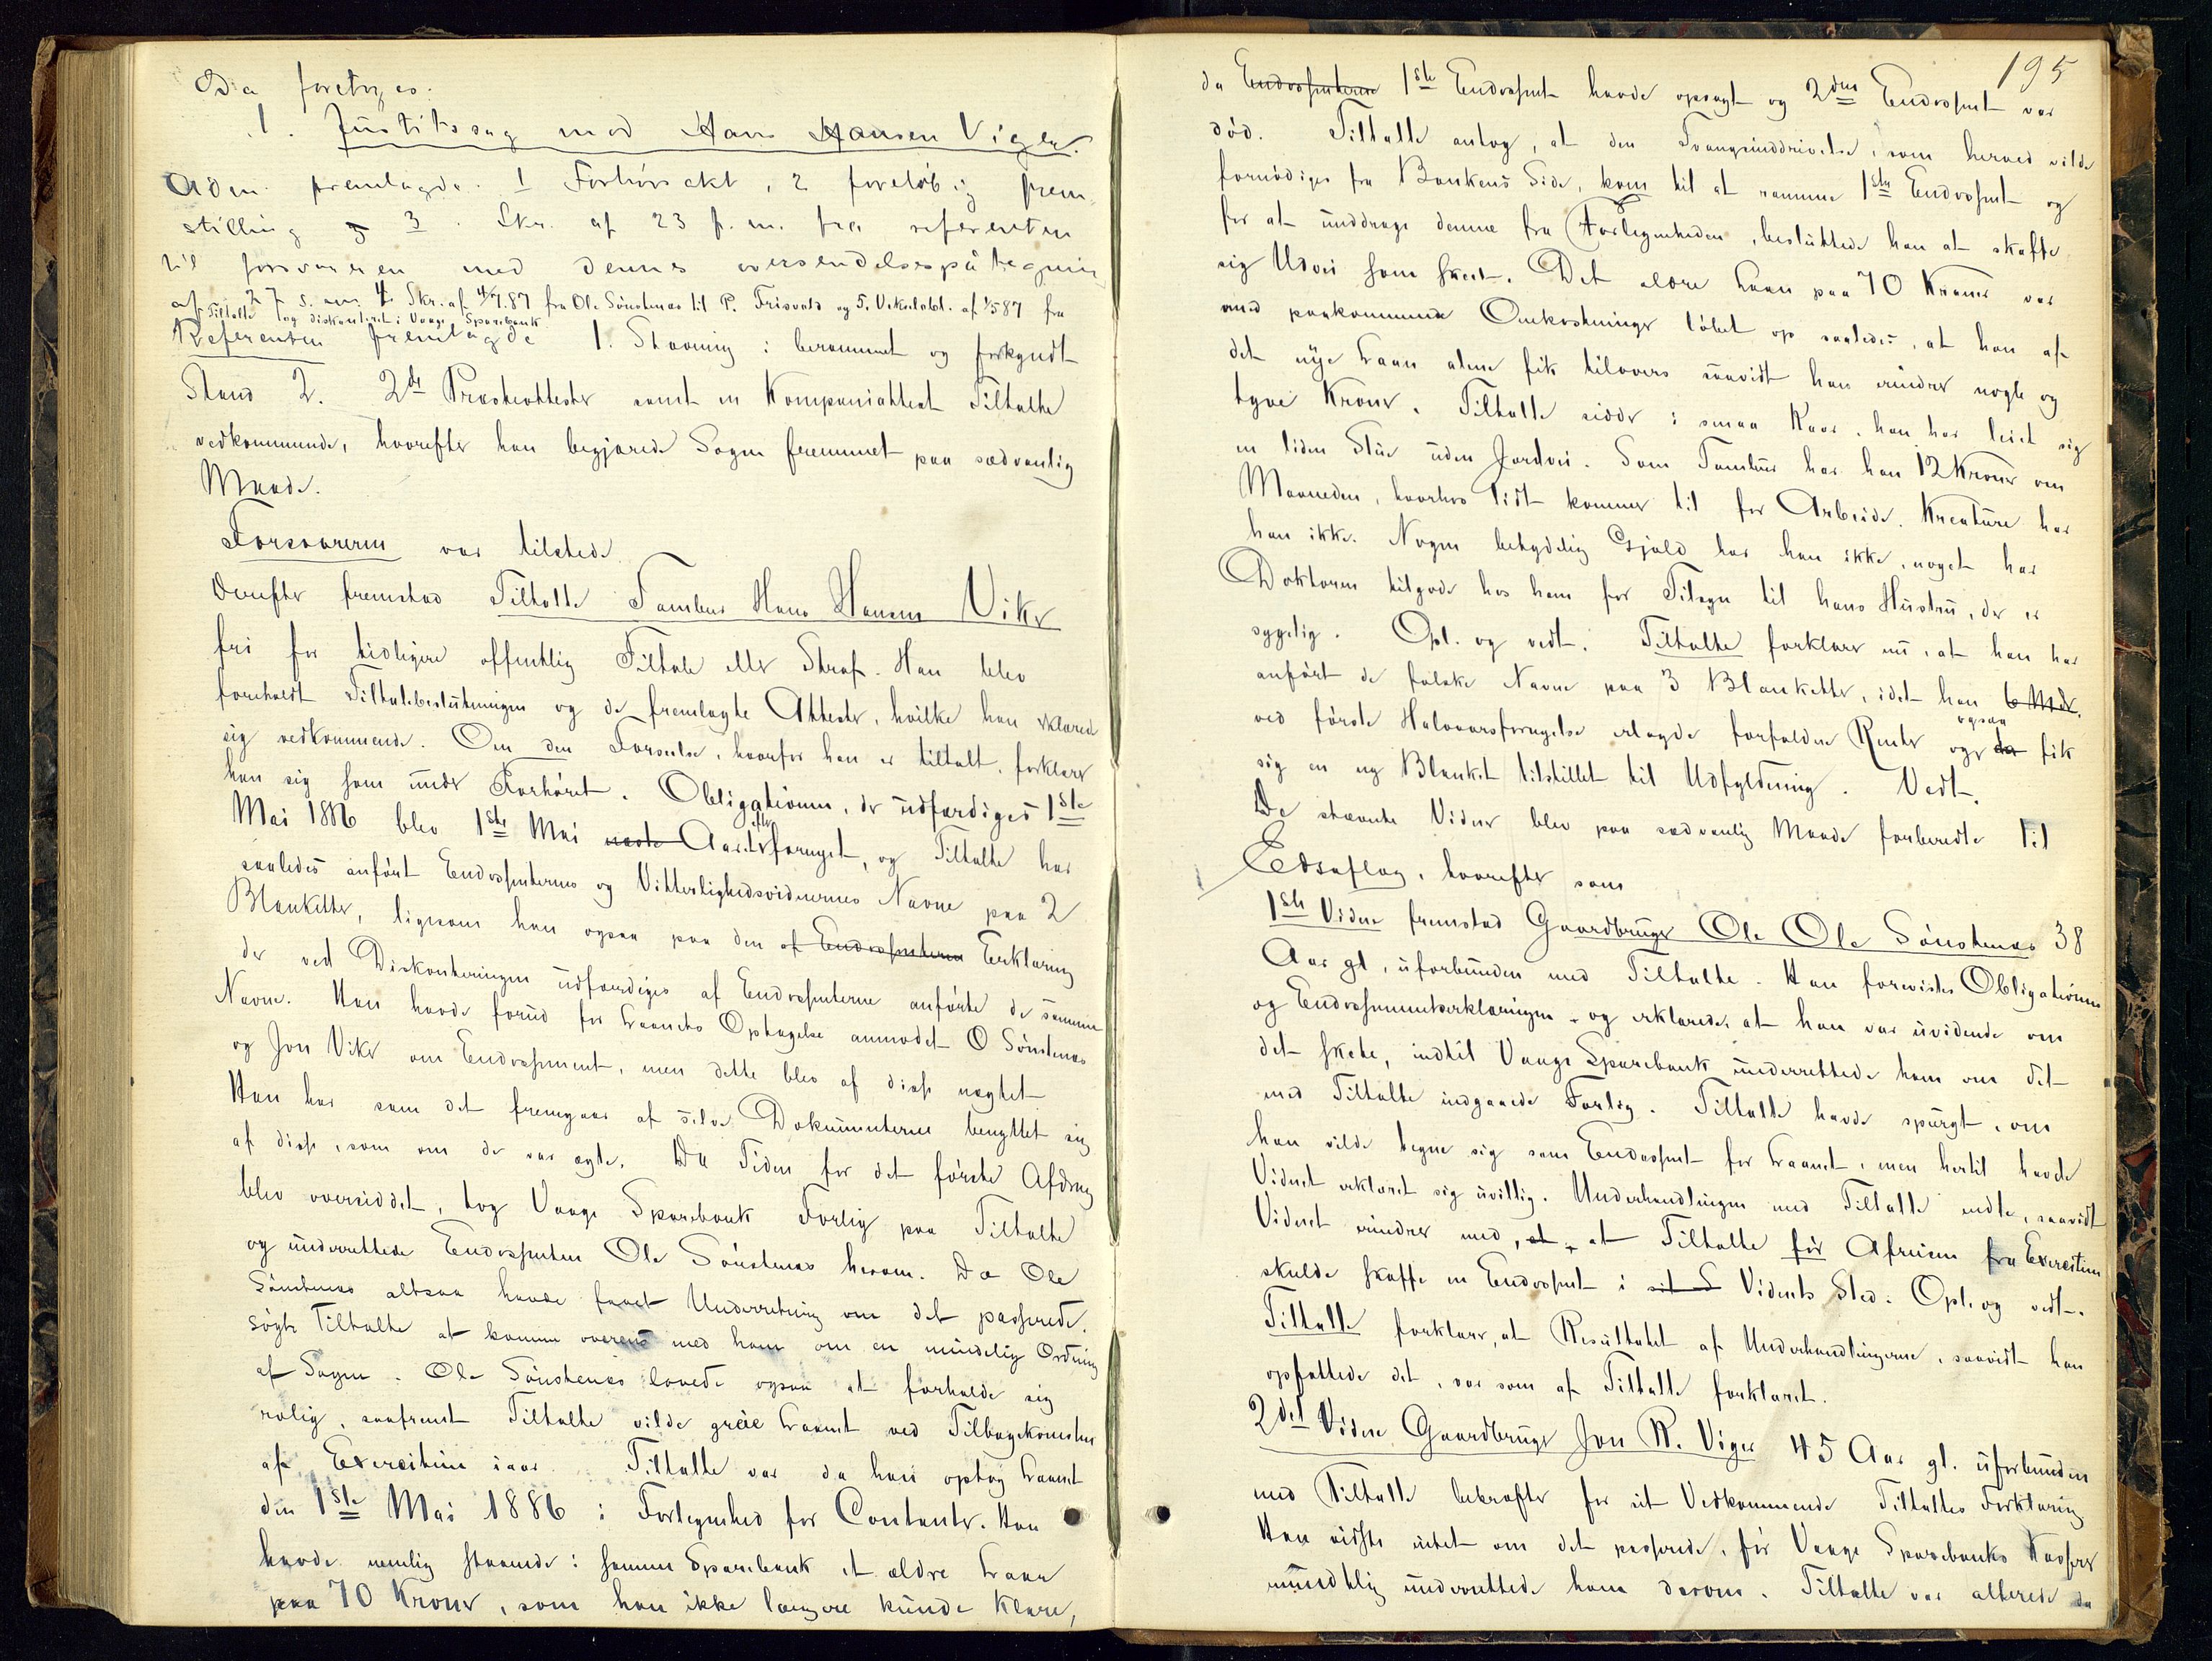 Da foretoges:
1. Justitssag mod Hans Hansen Viger.
Adm. fremlagde 1 Forhørsakt, 2 foreløbig frem
stilling og 3. Skr. af 23 f. m. fra referenten
til forsvareren med dennes oversendelsespåtegning
af 27 s. m. 4 Skr. af 4/7.87 fra Ole Sönstenes til P. Frisvold og 5. Vekselobl. af 1/5 87 fra
Tiltalte og diskonteret i Vaage Sparebank
Referenten fremlagde 1. Stævning i berammet og forkyndt
Stand 2. 2de Presteattester samt en Kompaniattest Tiltalte
vedkommende, hvorefter han begjærede Sagen fremmet paa sædvanlig
Maade.
Forsvareren var tilstede.
Derefter fremstod Tiltalte Tambur Hans Hansen Viker
fri for tidligere offentlig Tiltale eller Straf. Han blev
foreholdt Tiltalebeslutningen og de fremlagte Attester, hvilke han erklærede
sig vedkommende. Om den Forseelse, hvorfor han er tiltalt, forklarer
han sig som under Forhøret. Obligationen, der udfærdiges 1ste
Mai 1886 blev 1ste Mai næste Aar efter fornyet, og Tiltalte har
saaledes anført Endossenternes og Vitterlighedsvidnernes Navne paa 2
Blanketter, ligesom han ogsaa paa den af Endossenterne Erklæring
der ved Diskonteringen udfærdiges af Endossenterne anførte de samme
Navne. Han havde forud for Laanets Optagelse anmodet O Sönstenes
og Jon Viker om Endossement, men dette blev af disse nægtet.
Han har som det fremgaar af selve Dokumenterne benyttet sig
af disse, som om de var ægte. Da Tiden for det første Afdrag
blev oversiddet, tog Vaage Sparebank Forlig paa Tiltalte
og underrettede Endossenten Ole Sönstenes herom. Da Ole
Sönstenes altsaa havde faaet Underretning om det passerede,
søgte Tiltalte at komme overens med ham om en mindelig Ordning
af Sagen. Ole Sönstenes lovede ogsaa at forholde sig
rolig, saafremt Tiltalte vilde greie Laanet ved Tilbagekomsten
af Exercitien iaar. Tiltalte var da han optog Laanet
den 1ste Mai 1886 i Forlegenhed for Contanter. Han
havde nemlig staaende i samme Sparebank et ældre Laan
paa 70 Kroner, som han ikke længere kunde klare,
195
da Endossenterne 1ste Endossent havde opsagt og 2den Endossent var
død. Tiltalte antog, at den Tvangsinddrivelse, som herved vilde
fornødiges fra Bankens Side, kom til at ramme 1ste Endossent og
for at unddrage denne fra Forlegenheden, besluttede han at skaffe
sig Udvei som skeet. Det ældre Laan paa 70 Kroner var
med paakommende Omkostninger løbet op saaledes, at han af
det nye Laan alene fik tilovers saavidt han erindrer nogle og
tyve Kroner. Tiltalte sidder i smaa Kaar, han har leiet sig
en liden Stue uden Jordvei. Som Tambur har han 12 Kroner om
Maaneden, hvorhos lidt kommer til for Arbeide. Kreature har
han ikke. Nogen betydelig Gjæld har han ikke, noget har
Doktoren tilgode hos ham for Tilsyn til hans Hustru, der er
sygelig. Opl. og vedt. Tiltalte forklarer nu, at han har
anført de falske Navne paa 3 Blanketter, idet han 6 Mdr.
ved første Halvaarsfornyelse erlagde forfaldne Renter og da ogsaa fik
sig en ny Blanket tilstillet til Udfyldning. Vedt.
De stævnte Vidner blev paa sædvanlig Maade forberedte til
Edsaflæg, hvorefter som
1ste Vidne fremstod Gaardbruger Ole Ols Sönstenes 38
Aar gl, uforbunden med Tiltalte. Han forevistes Obligationen
og Endossementserklæringen og erklærede, at han var uvidende om
det skete, indtil Vaage Sparebank underrettede ham om det
med Tiltalte indgaaede Forlig. Tiltalte havde spurgt, om
han vilde tegne sig som Endossent for Laanet, men hertil havde
Vidnet erklæret sig uvillig. Underhandlingen med Tiltalte endte, saavidt
Vidnet erindrer med, at, at Tiltalte før Afreisen fra Exercitien
skulde skaffe en Endossent i sit S Vidnets Sted. Opl. og vedt.
Tiltalte forklarer, at Resultatet af Underhandlingerne, saavidt han
opfattede det, var som af Tiltalte forklaret.
2det Vidne Gaardbruger Jon R. Viger 45 Aar gl. uforbunden
med Tiltalte bekræfter for sit Vedkommende Tiltaltes Forklaring
Han vidste intet om det passerede, før Vaage Sparebanks Kasserer
mundtlig underrettede ham derom. Tiltalte var allerede da